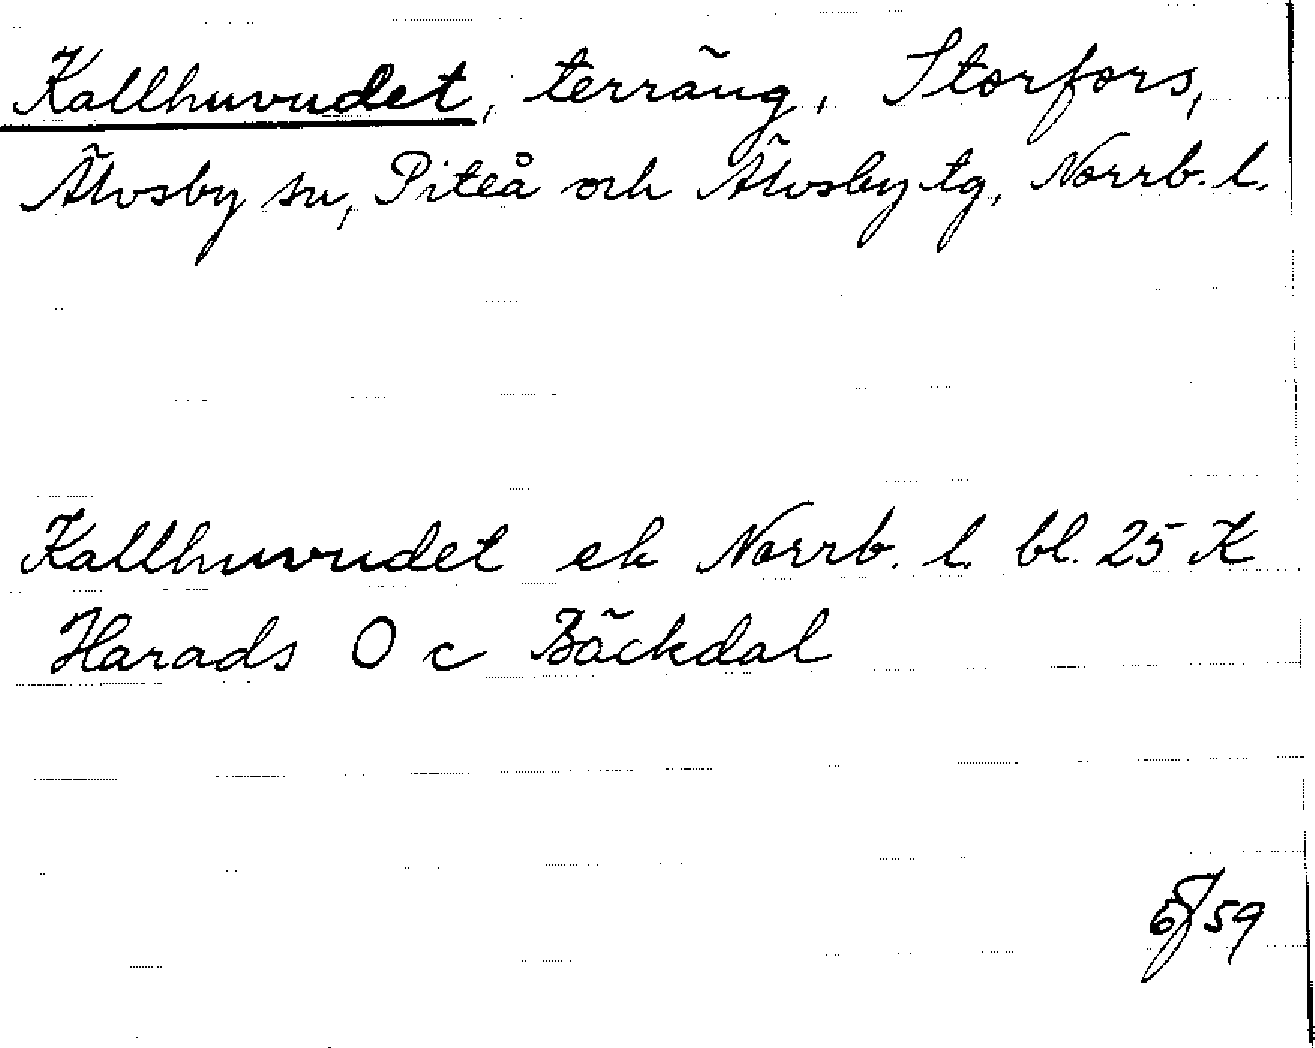 Kallhuvudet, terräng, Storfors,
Älvsby sn, Piteå och Älvsby tg, Norrb. l.
Kallhuvudet ek Norrb. l. bl. 25 K
Harads O c Bäckdal
59